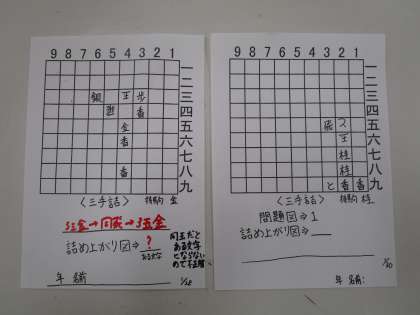 9 8 7 6 5 4 3 2 1
一
二
三
四
五
六
七
八
九
銀 王 歩
香
金
香
香
〈三手詰〉 持駒 金
詰め上がり図⇒ ?
ある文字
同玉だと
ある文字
にならない
ので不正解
年 名前
9 8 7 6 5 4 3 2 1
一
二
三
四
五
六
七
八
九
飛
王
桂
桂
と 香 香
〈三手詰〉 持駒 桂
問題図⇒1
詰め上がり図⇒
年 名前: